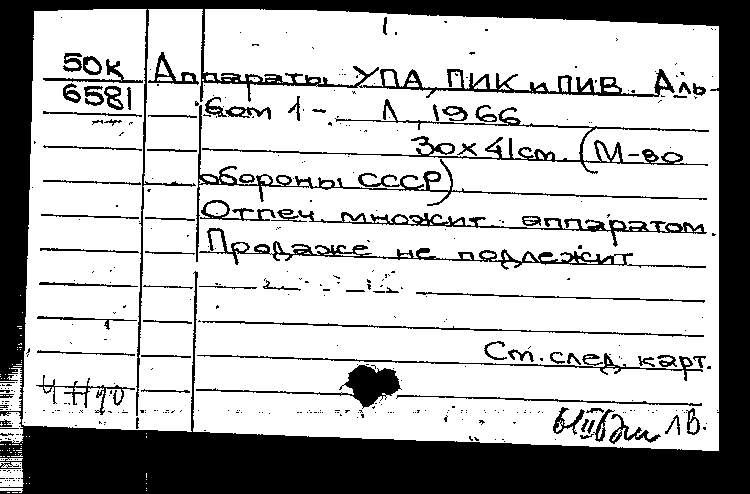 1.
50К Аппараты УПА, ПИК и ПИВ. Аль-
6581 бом 1- Л, 1966.
30х41см. (М-во
обороны СССР).
Отпеч. множит. аппаратом.
Продаже не подлежит
Ст. след. карт.
ЛВ.